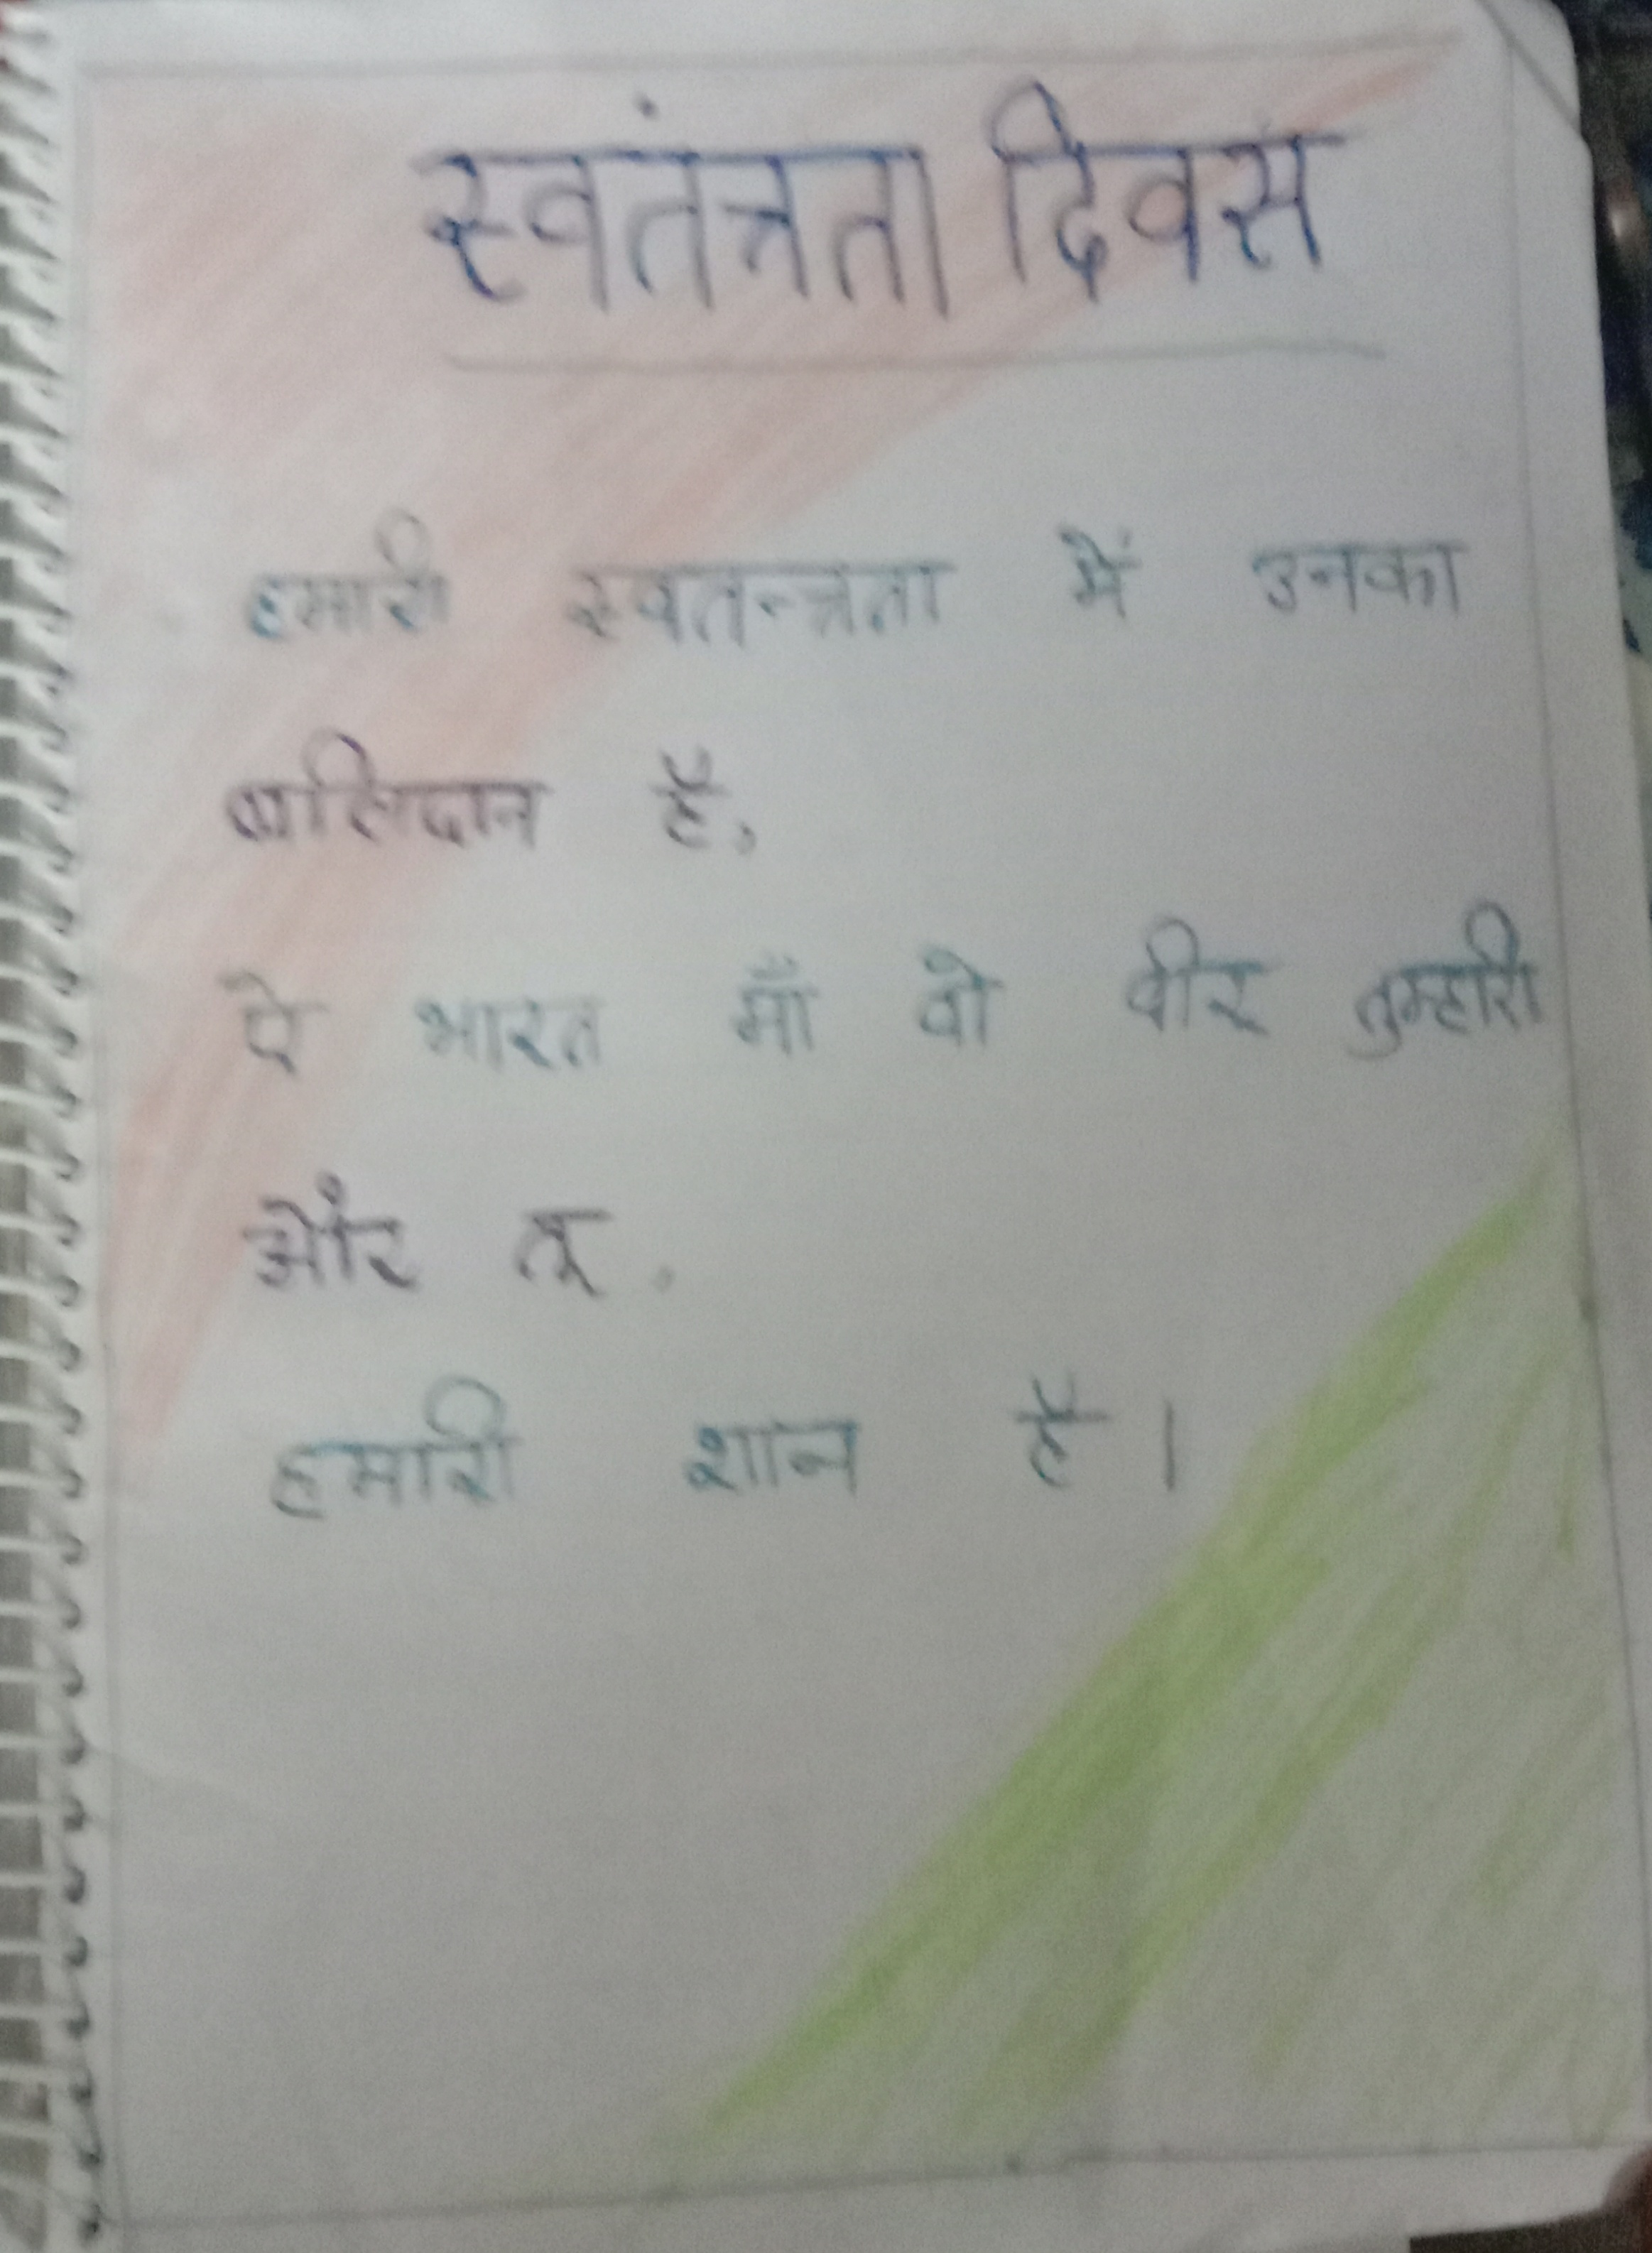 स्वतंत्रता दिवस
हमारी स्वतन्त्रता में उनका
बलिदान है,
ऐ भारत माँ वो वीर तुम्हारी
और तू.
हमारी शान है।